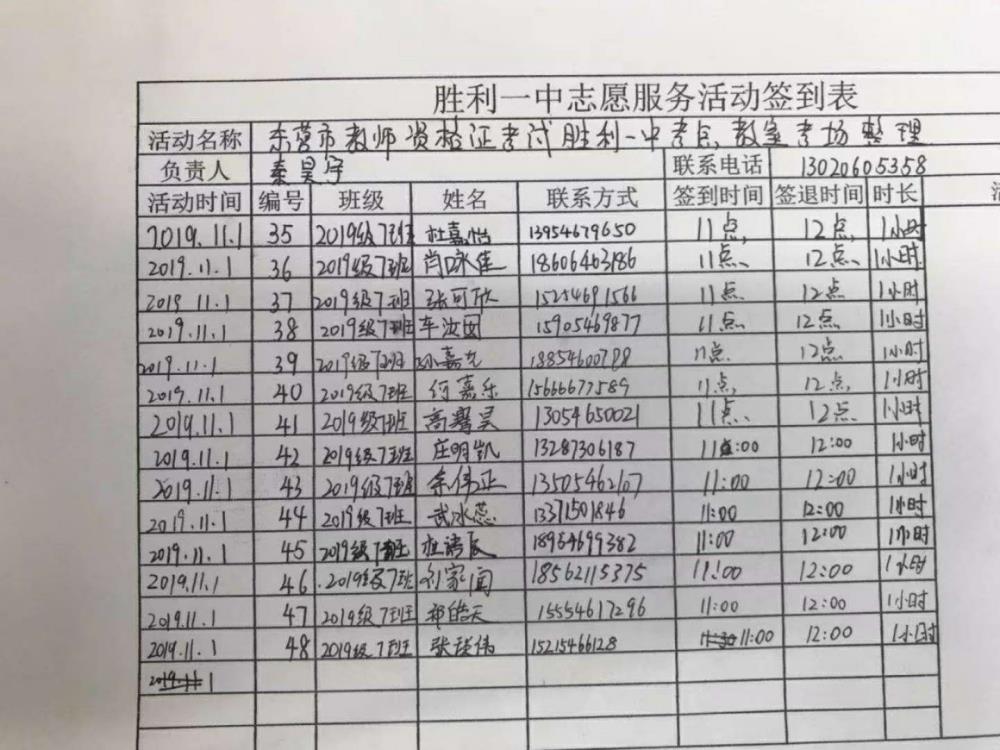 胜利一中志愿服务活动签到表
活动名称 东营市教师资格证考试胜利一中考点,教室考场整理
负责人 秦昊宇 联系电话 13020605358
活动时间 编号 班级 姓名 联系方式 签到时间 签退时间 时长
2019.11.1 35 2019级7班 杜嘉怡 13954679650 11点 12点 1小时
2019.11.1 36 2019级7班 肖咏佳 18606463186 11点 12点 1小时
2019.11.1 37 2019级7班 张可欣 15254691566 11点 12点 1小时
2019.11.1 38 2019级7班 车汝囡 15905469877 11点 12点 1小时
2019.11.1 39 2019级7班 孙嘉 11点 12点 1小时
2019.11.1 40 2019级7班 何嘉乐 15666677589 11点 12点 1小时
2019.11.1 41 2019级7班 高 昊 13054650021 11点 12点 1小时
2019.11.1 42 2019级7班 庄明凯 13287306187 11:00 12:00 1小时
2019.11.1 43 2019级7班 余伟正 13505462107 11:00 12:00 1小时
2019.11.1 44 2019级7班 武冰蕊 13371501846 11:00 12:00 1小时
2019.11.1 45 2019级7班 杜诺辰 18954699382 11:00 12:00 1小时
2019.11.1 46 2019级7班 刘家闻 18562115375 11:00 12:00 1小时
2019.11.1 47 2019级7班 郑皓天 15554617296 11:00 12:00 1小时
2019.11.1 48 2019级7班 张 伟 15215466128 11:00 12:00 1小时